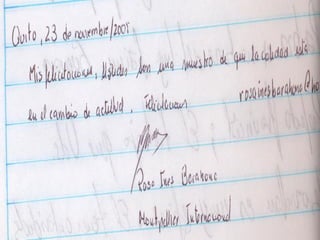 Quito, 23 de noviembre/2005
Mis felicitaciones, Ustedes son una muestra de que la calidad está
en el cambio de actitud. Felicitaciones rosainesbarahona@ho
Rosa Ines Barahona
Montpellier International